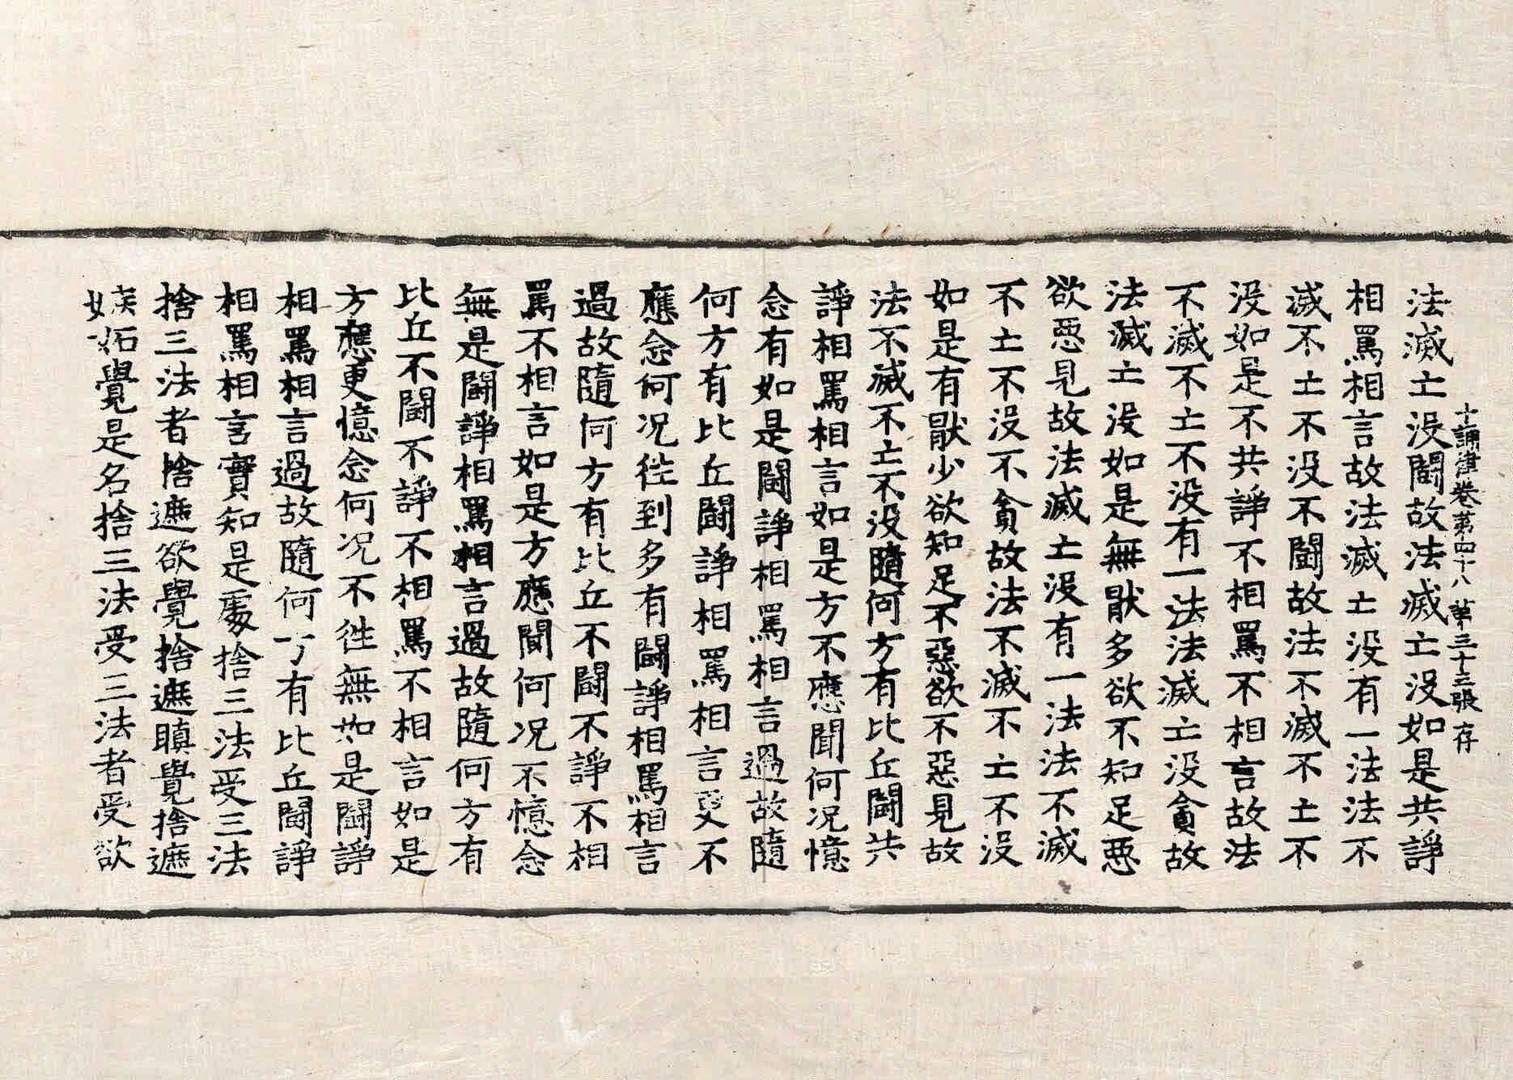 十誦律卷第四十八 第三十三張 存
法滅亡没鬪故法滅亡没如是共諍
相罵相言故法滅亡没有一法法不
滅不亡不没不鬪故法不滅不亡不
没如是不共諍不相罵不相言故法
不滅不亡不没有一法法滅亡没貪故
法滅亡没如是無猒多欲不知足惡
欲惡見故法滅亡没有一法法不滅
不亡不没不貪故法不滅不亡不没
如是有猒少欲知足不惡欲不惡見故
法不滅不亡不没隨何方有比丘鬪共
諍相罵相言如是方不應聞何況憶
念有如是鬪諍相罵相言過故隨
何方有比丘鬪諍相罵相言更不
應念何況往到多有鬪諍相罵相言
過故隨何方有比丘不鬪不諍不相
罵不相言如是方應聞何況不憶念
無是鬪諍相罵相言過故隨何方有
比丘不鬪不諍不相罵不相言如是
方應更憶念何況不往無如是鬪諍
相罵相言過故隨何方有比丘鬪諍
相罵相言實知是處捨三法受三法
捨三法者捨遮欲覺捨遮瞋覺捨遮
嫉妬覺是名捨三法受三法者受欲